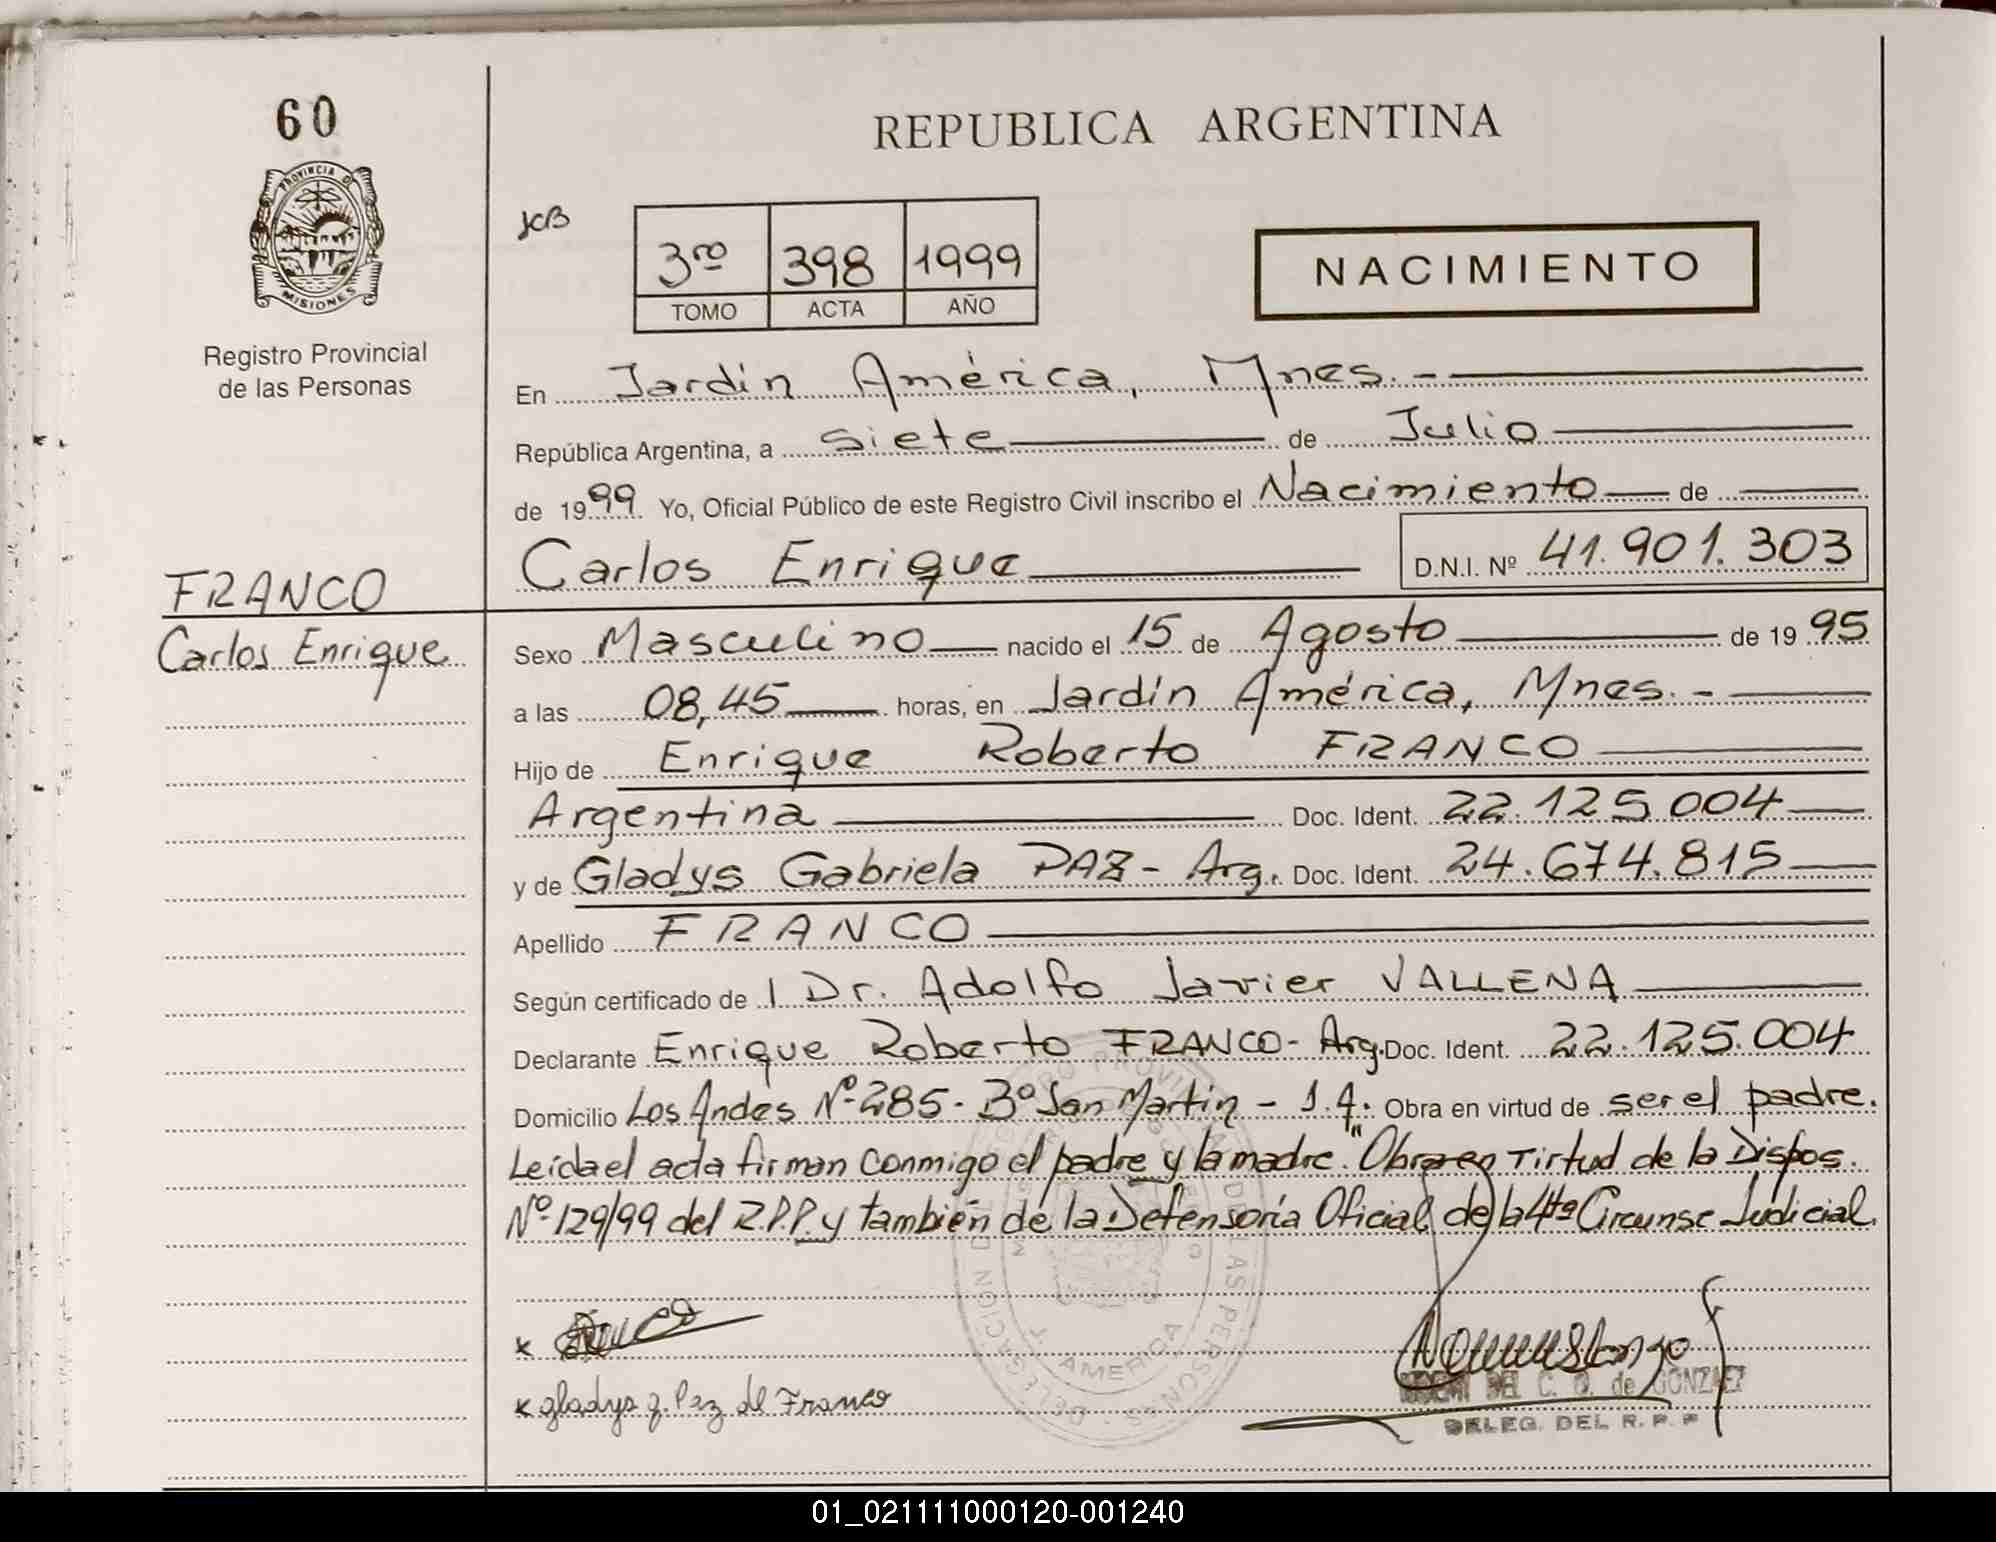 60
REPUBLICA ARGENTINA
PROVINCIA D
MISIONES
JCB
3ro 398 1999
TOMO ACTA AÑO
NACIMIENTO
Registro Provincial
de las Personas
En Jardín América, Mnes. -
República Argentina, a siete de Julio
de 1999 Yo, Oficial Público de este Registro Civil inscribo el Nacimiento de
Carlos Enrique D.N.I. Nº 41.901.303
FRANCO
Carlos Enrique
Sexo Masculino nacido el 15 de Agosto de 1995
a las 08,45 horas, en Jardín América, Mnes. -
Hijo de Enrique Roberto FRANCO
Argentina Doc. Ident. 22.125.004
y de Gladys Gabriela PAZ - Arg. Doc. Ident. 24.674.815
Apellido FRANCO
Según certificado de l Dr. Adolfo Javier VALLENA
Declarante Enrique Roberto FRANCO - Arg. Doc. Ident. 22.125.004
Domicilio Los Andes Nº 285 - Bº San Martin - J.A. Obra en virtud de ser el padre.
Leída el acta firman conmigo el padre y la madre. "Obra en Tirtud de la Dispos.
Nº 129/99 del R.P.P. y también de la Defensoría Oficial de la 4ta Circunsc Judicial.
x
x gladys g. Paz de Franco
C. G. de GONZALEZ
DELEG. DEL R. P. P
01_021111000120-001240